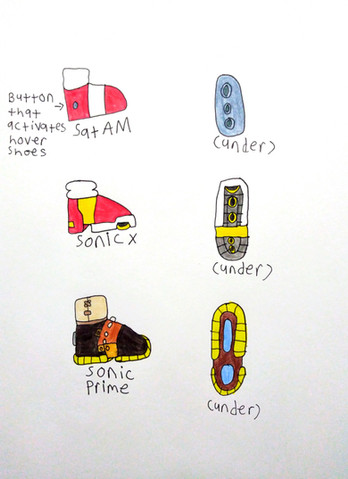 Button
that
activates
hover
shoes
SatAM
(under)
sonic x
(under)
sonic
Prime
(under)